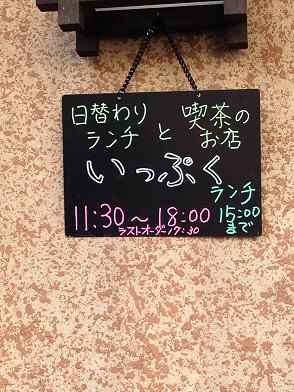 日替わり 喫茶の
ランチ と お店
いっぷく
ランチ
11:30～18:00 15:00
ラストオーダー17:30 まで